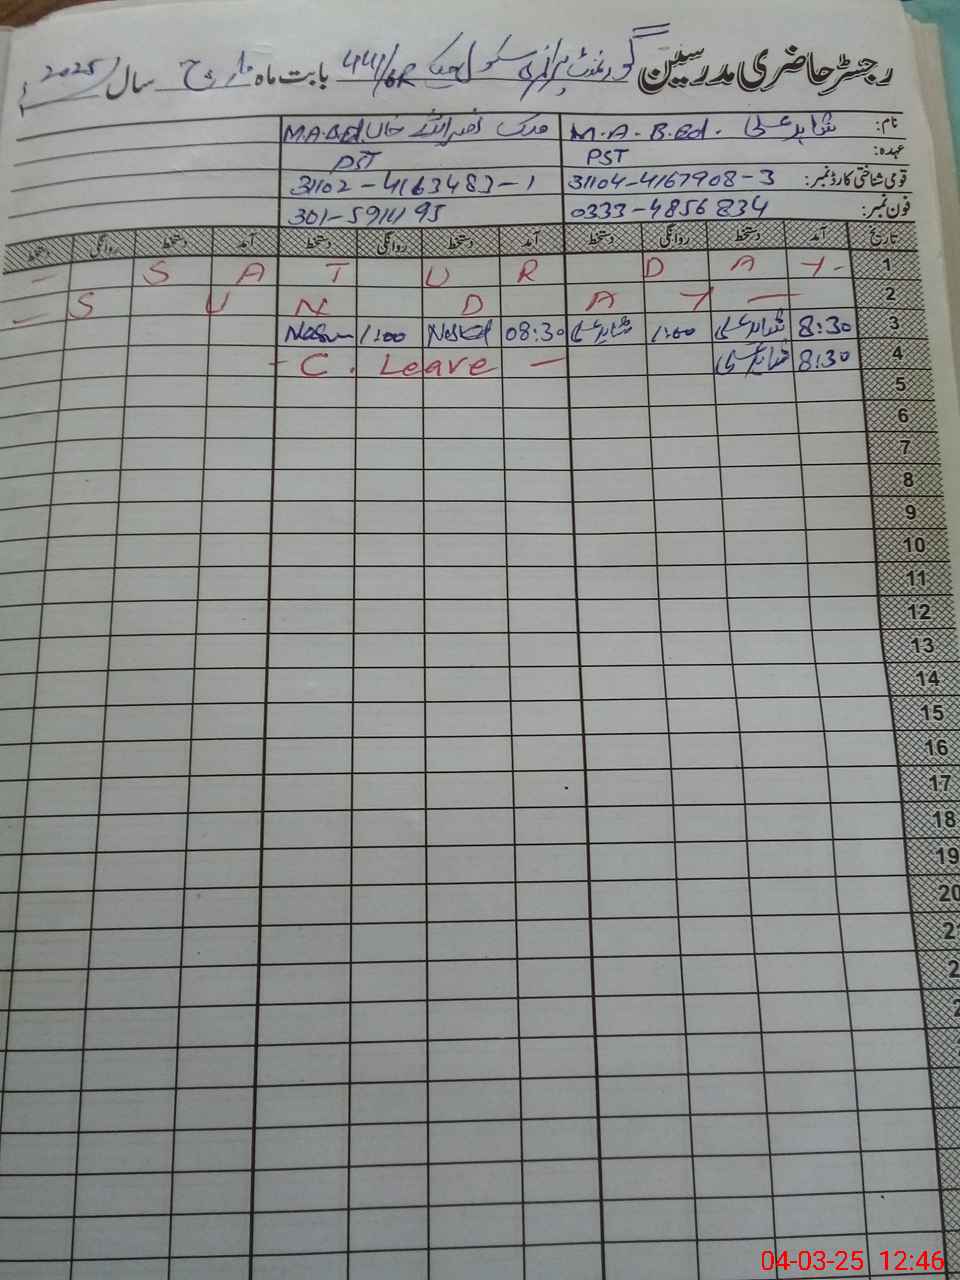 رجسٹر حاضری مدرسین گورنمنٹ پرائمری سکول چک 441/6R بابت ماہ مارچ سال 2025
نام: شاہد علی M.A. B.Ed. ملک نصراللہ خاں M.A.B.Ed.
عہدہ: PST PST
قومی شناختی کارڈ نمبر: 31104-4167908-3 31102-4163483-1
فون نمبر: 0333-4856834 301-5911495
تاریخ آمد دستخط روانگی دستخط آمد دستخط روانگی دستخط آمد دستخط روانگی دستخط
1 - S A T U R D A Y -
2 - S U N D A Y -
3 8:30 شاہد علی 1:00 شاہد علی 08:30 1:00
4 8:30 شاہد علی - C. Leave -
5
6
7
8
9
10
11
12
13
14
15
16
17
18
19
20
04-03-25 12:46